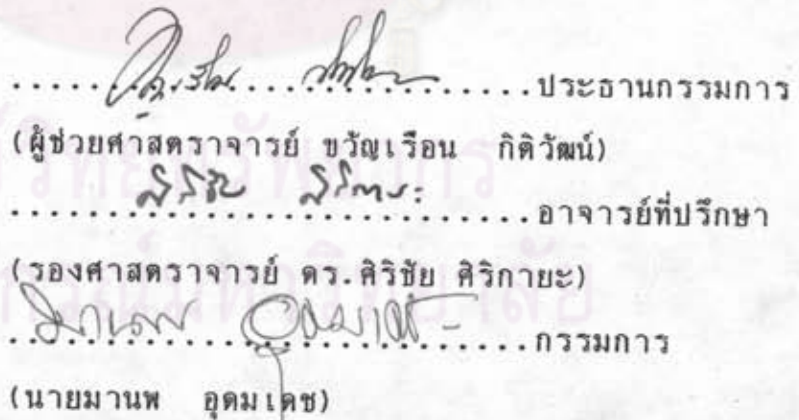 ..............................ประธานกรรมการ
(ผู้ช่วยศาสตราจารย์ ขวัญเรือน กิติวัฒน์)
ศิริชัย ศิริกายะ
..............................อาจารย์ที่ปรึกษา
(รองศาสตราจารย์ ดร.ศิริชัย ศิริกายะ)
มานพ อุดมเดช
..............................กรรมการ
(นายมานพ อุดมเดช)